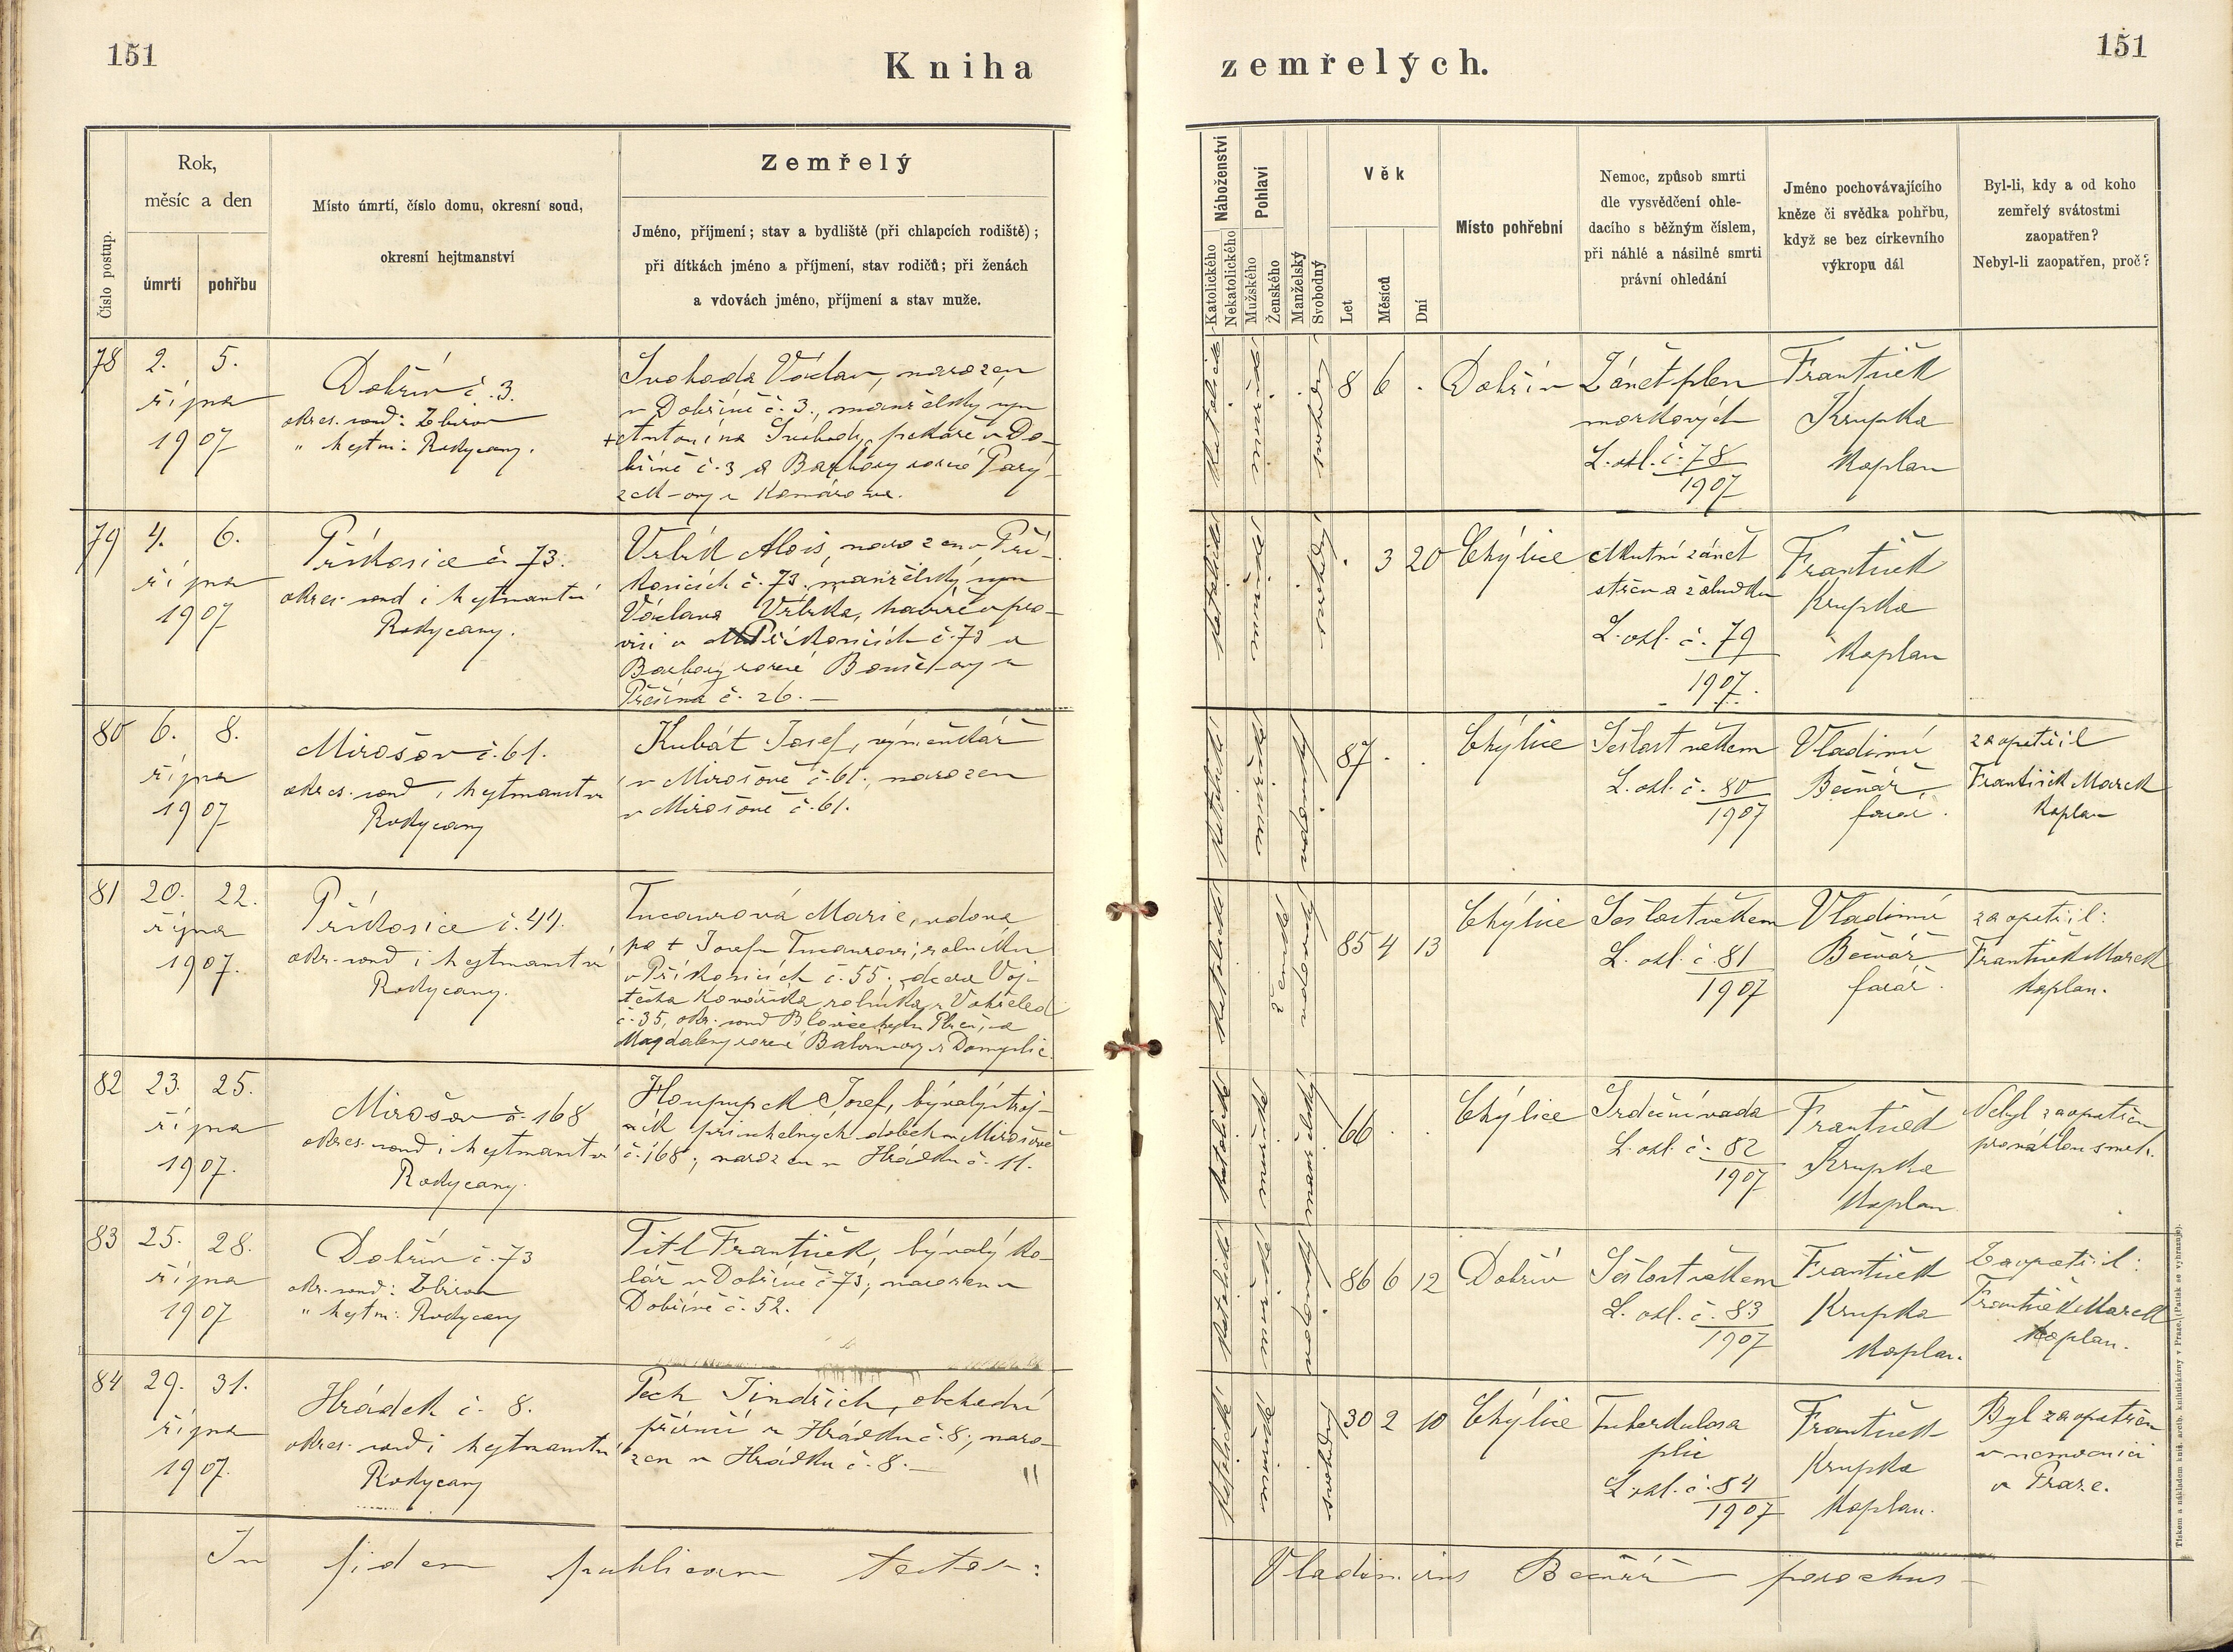 151
Kniha
zemřelých.
151
Číslo postup.
Rok,
měsíc a den
úmrtí
pohřbu
Místo úmrtí, číslo domu, okresní soud,
okresní hejtmanství
Zemřelý
Jméno, příjmení; stav a bydliště (při chlapcích rodiště);
při dítkách jméno a příjmení, stav rodičů; při ženách
a vdovách jméno, příjmení a stav muže.
Náboženství
Katolického
Nekatolického
Pohlaví
Mužského
Ženského
Manželský
Svobodný
Věk
Let
Měsíců
Dní
Místo pohřební
Nemoc, způsob smrti
dle vysvědčení ohle-
dacího s běžným číslem,
při náhlé a násilné smrti
právní ohledání
Jméno pochovávajícího
kněze či svědka pohřbu,
když se bez církevního
výkropu dál
Byl-li, kdy a od koho
zemřelý svátostmi
zaopatřen?
Nebyl-li zaopatřen, proč?
78
2.
5.
října
1907
Dobřív č. 3.
okres. soud: Zbirov
" hejtm: Rokycany.
Svoboda Václav, narozen
v Dobřívě č. 3., manželský syn
+ Antonína Svobody, pekaře v Do-
břívě č. 3 a Barbory rozené Parý-
zek-ovy z Komárova.
katolické
mužské
svobodný
8
6
.
Dobřív
Zánět plen
mozkových
L. ohl. č. 78
1907
František
Krupka
kaplan
79
4.
6.
října
1907
Příkosice č. 73.
okres. soud i hejtmanství
Rokycany.
Vrbík Alois, narozen v Pří-
kosicích č. 73, manželský syn
Václava Vrbíka, havíře v pro-
visi v Příkosicích č. 73 a
Barbory rozené
č. 26. —
katolické
svobodný
.
3
20
Chýlice
Akutní zánět
střev a žaludku
L. ohl. č. 79
1907.
František
Krupka
kaplan
80
6.
8.
října
1907
Mirošov č. 61.
okres. soud i hejtmanství
Rokycany
Kubát Josef, výměnkář
v Mirošově č. 61., narozen
v Mirošově č. 61.
katolické
vdovský
87
.
.
Chýlice
Sešlost věkem
L. ohl. č. 80
1907
Vladimír
Bečvář
farář.
zaopatřil
František Marek
kaplan
81
20.
22.
října
1907.
Příkosice č. 44.
okr. soud i hejtmanství
Rokycany.
Marie, vdova
po + Josefu rolníku
v Příkosicích č. 55; dcera Voj-
těcha Kováříka rolníka
č. 35, okr. soud Blovice hejtm Plzeň, a
Magdaleny rozené
katolické
ženské
vdovský
85
4
13
Chýlice
Sešlost věkem
L. ohl. č. 81
1907
Vladimír
Bečvář
farář.
zaopatřil:
František Marek
kaplan.
82
23.
25.
října
1907.
Mirošov č. 168
okres. soud i hejtmanství
Rokycany.
Josef, bývalý stroj-
ník při uhelných dolech v Mirošově
č. 168; narozen v Hrádku č. 11.
katolické
manželský
66
.
.
Chýlice
Srdeční vada
L. ohl. č. 82
1907
František
Krupka
kaplan
Nebyl zaopatřen
pro náhlou smrt.
83
25.
28.
října
1907
Dobřív č. 73
okr. soud: Zbirov
" hejtm: Rokycany
Titl František, bývalý ko-
lář v Dobřívě č. 73; narozen v
Dobřívě č. 52.
katolické
vdovský
86
6
12
Dobřív
Sešlost věkem
L. ohl. č. 83
1907
František
Krupka
kaplan.
Zaopatřil:
František Marek
kaplan.
84
29.
31.
října
1907.
Hrádek č. 8.
okres. soud i hejtmanství
Rokycany
Pech Jindřich, obchodní
příručí v Hrádku č. 8; naro-
zen v Hrádku č. 8. —
katolické
svobodný
30
2
10
Chýlice
Tuberkulosa
plic
L. ohl. č. 84
1907
František
Krupka
kaplan.
Byl zaopatřen
v nemocnici
v Praze.
In fidem publicam testor:
Vladimirus Bečvář parochus
Tiskem a nákladem kníž. arcib. knihtiskárny v Praze. (Patisk se vyhrazuje).